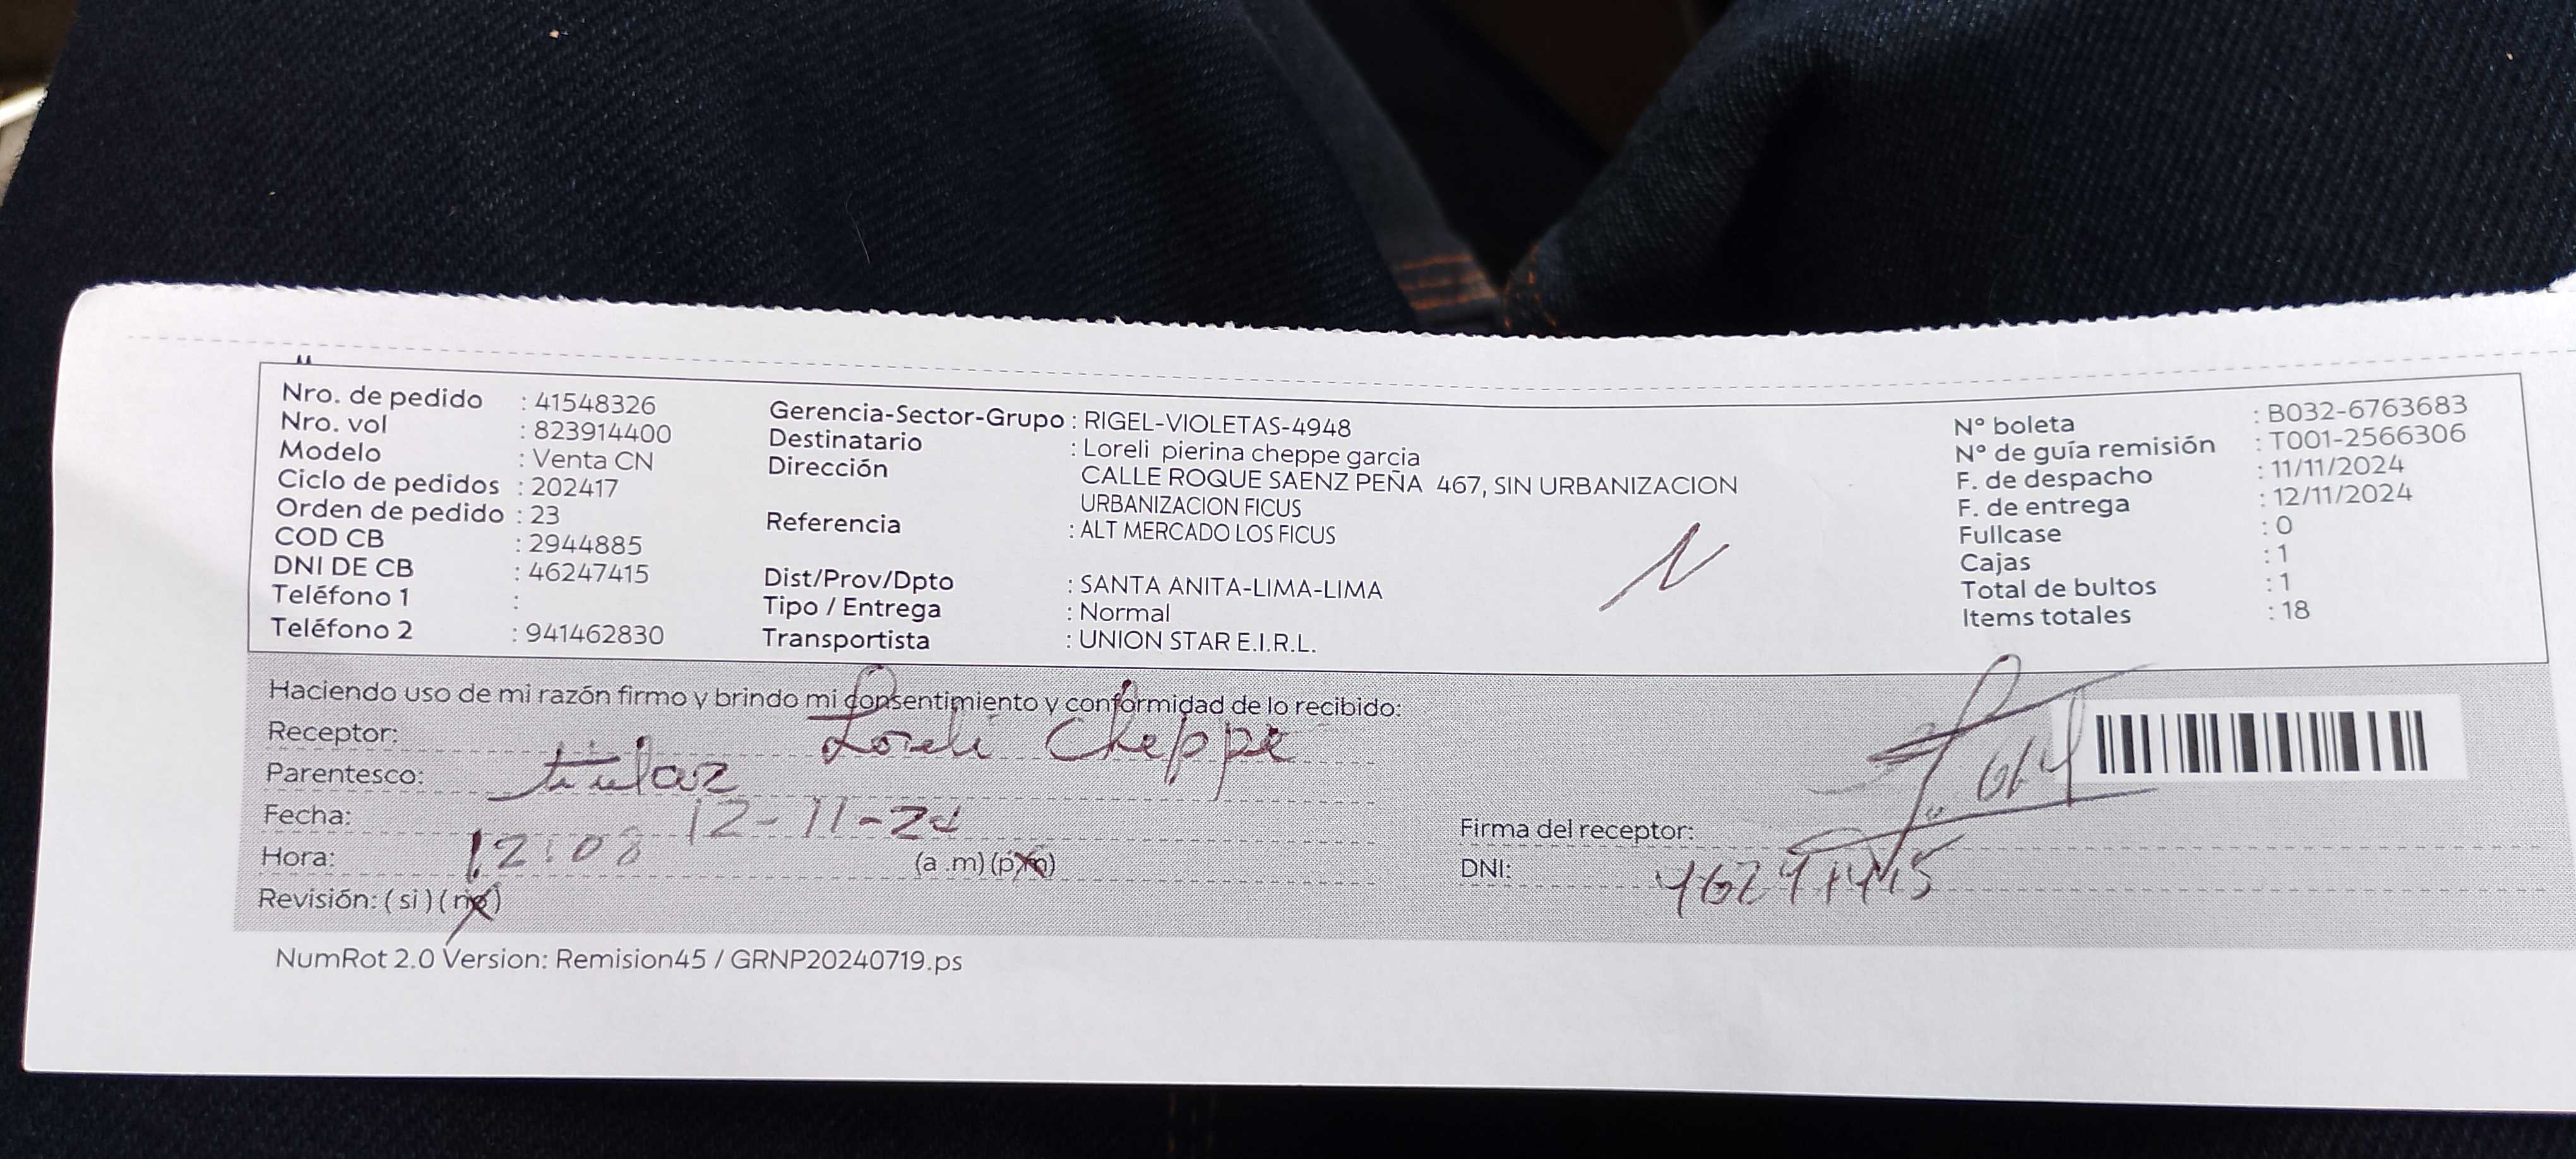 Nro. de pedido : 41548326
Nro. vol : 823914400
Modelo : Venta CN
Ciclo de pedidos : 202417
Orden de pedido : 23
COD CB : 2944885
DNI DE CB : 46247415
Teléfono 1 :
Teléfono 2 : 941462830
Gerencia-Sector-Grupo : RIGEL-VIOLETAS-4948
Destinatario : Loreli pierina cheppe garcia
Dirección CALLE ROQUE SAENZ PEÑA 467, SIN URBANIZACION
URBANIZACION FICUS
Referencia : ALT MERCADO LOS FICUS
Dist/Prov/Dpto : SANTA ANITA-LIMA-LIMA
Tipo / Entrega : Normal
Transportista : UNION STAR E.I.R.L.
N° boleta : B032-6763683
N° de guía remisión : T001-2566306
F. de despacho : 11/11/2024
F. de entrega : 12/11/2024
Fullcase : 0
Cajas : 1
Total de bultos : 1
Items totales : 18
Haciendo uso de mi razón firmo y brindo mi consentimiento y conformidad de lo recibido:
Receptor: Loreli Cheppe
Parentesco: titular
Fecha: 12-11-24
Hora: 12:08 (a .m) (p.m)
Revisión: ( si ) ( no )
Firma del receptor:
DNI: 46247415
NumRot 2.0 Version: Remision45 / GRNP20240719.ps